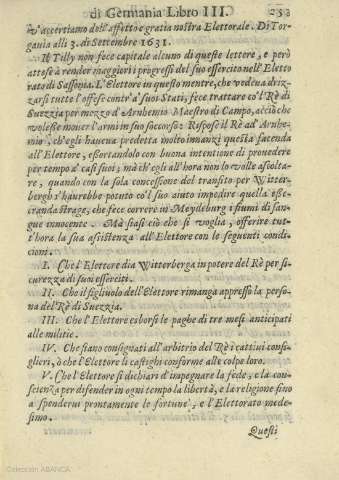 di Germania Libro III. 253
v'accertiamo dell'affetto e gratia nostra Elettorale. Di Tor-
gauia alli 3. di Settembre 1631.
Il Tilly non fece capitale alcuno di queste lettere, e però
attese à render maggiori i progressi del suo essercito nell'Eletto
rato di Sassonia. L'Elettore in questo mentre, che vedeua driz-
zarsi tutte l'offese contr'a' suoi Stati, fece trattare co'l Rè di
Suezzia per mezzo d'Arnhemio Maestro di Campo, acciò che
volesse mouer l'armi in suo soccorso. Rispose il Rè ad Arnhe-
mio, ch'egli haueua predetta molto innanzi questa facenda
all'Elettore, essortandolo con buona intentione di prouedere
per tempo a' casi suoi; mà ch'egli all'hora non lo volle ascolta-
re, quando con la sola concessione del transito per Witter-
bergh s'haurebbe potuto co'l suo aiuto impedire quella esse-
cranda strage, che fece correre in Meydeburg i fiumi di san-
gue innocente. Mà siasi ciò che si voglia, offerire tut-
t'hora la sua assistenza all'Elettore con le seguenti condi-
cioni.
I. Che l'Elettore dia Witterberga in potere del Rè per si-
curezza di suoi esserciti.
II. Che il figliuolo dell'Elettore rimanga appresso la perso-
na del Rè di Suezzia.
III. Che l'Elettore esborsi le paghe di tre mesi anticipati
alle militie.
IV. Che siano consignati all'arbitrio del Rè i cattiui consi-
glieri, ò che l'Elettore li castighi conforme alle colpe loro.
V. Che l'Elettore si dichiari d'impegnare la fede, e la con-
scienza per difender in ogni tempo la libertà, e la religione sino
a spenderui prontamente le fortune, e l'Elettorato mede-
simo.
Questi
Colección ABANCA